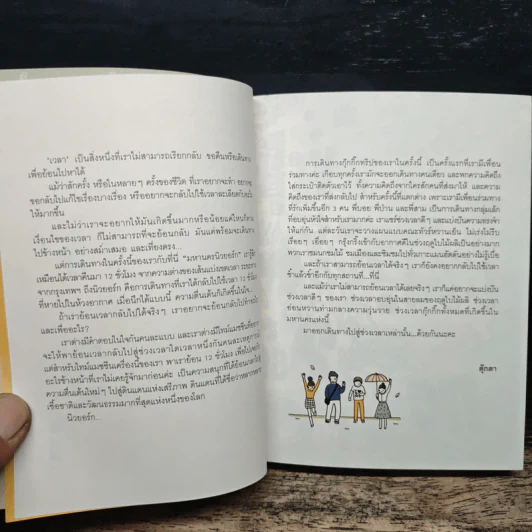 'เวลา' เป็นสิ่งหนึ่งที่เราไม่สามารถเรียกกลับ ขอคืนหรือเดินทาง
เพื่อย้อนไปหาได้
แม้ว่าสักครั้ง หรือในหลายๆ ครั้งของชีวิต ที่เราอยากจะทำ อยากจะ
ขอกลับไปแก้ไขเรื่องบางเรื่อง หรืออยากจะกลับไปใช้เวลาละเลียดกับอะไร
ให้มากขึ้น
และไม่ว่าเราจะอยากให้มันเกิดขึ้นมากหรือน้อยแค่ไหนก็ตาม
เงื่อนไขของเวลา ก็ไม่สามารถที่จะย้อนกลับ มันแค่พร้อมจะเดินหน้า
ไปข้างหน้า อย่างสม่ำเสมอ และเที่ยงตรง...
แต่การเดินทางในครั้งนี้ของเรากับที่นี่ "มหานครนิวยอร์ก"
เหมือนได้เวลาคืนมา 12 ชั่วโมง จากความต่างของเส้นแบ่งเขตเวลา
จากกรุงเทพฯ ถึงนิวยอร์ก คือการเดินทางที่เราได้กลับไปใช้เวลา 12
ที่หายไปในห้วงอากาศ เมื่อนึกได้แบบนี้ ความตื่นเต้นก็เกิดขึ้นในใจ
ถ้าเราย้อนเวลากลับไปได้จริงๆ เราอยากจะย้อนกลับไปทำอะไร
และเพื่ออะไร?
เราต่างมีคำตอบในใจกันคนละแบบ และเราต่างมีไทม์แมชชีนที่
จะให้พาย้อนเวลากลับไปสู่ช่วงเวลาใดเวลาหนึ่งกันคนละเหตุ
แต่สำหรับไทม์แมชชีนเครื่องนี้ของเรา พาเราย้อน 12 ชั่วโมง เพื่อไป
อะไรข้างหน้าที่เราไม่เคยรู้จักมาก่อนค่ะ เป็นความสนุกที่ได้ย้อน
ความตื่นเต้นใหม่ๆ ไปสู่ดินแดนแห่งเสรีภาพ ดินแดนที่ได้ชื่อว่าหลากหลาย
เชื้อชาติและวัฒนธรรมมากที่สุดแห่งหนึ่งของโลก
นิวยอร์ก...
การเดินทางกุ๊กกิ๊กทริปของเราในครั้งนี้ เป็นครั้งแรกที่เรามีเพื่อน
ร่วมทางค่ะ เกือบทุกครั้งเรามักจะออกเดินทางคนเดียว และพกความคิดถึง
ใส่กระเป๋าติดตัวเอาไว้ ทั้งความคิดถึงจากใครสักคนที่ส่งมาให้ และความ
คิดถึงของเราที่ส่งกลับไป สำหรับครั้งนี้ที่แตกต่าง เพราะเรามีเพื่อนร่วมทาง
ที่รักเพิ่มขึ้นอีก 3 คน พี่บอย พี่ป่าน และพี่สาม เป็นการเดินทางกลุ่มเล็ก
ที่อบอุ่นหัวใจสำหรับเรามากค่ะ เราแชร์ช่วงเวลาดีๆ และแบ่งปันความทรงจำ
ให้แก่กัน แต่ละวันเราจะวางแผนแบบคณะทัวร์หวานเย็น ไม่เร่งไม่รีบ
เรื่อยๆ เอื่อยๆ กรุ้งกริ้งเข้ากับอากาศดีในช่วงฤดูใบไม้ผลิเป็นอย่างมาก
พวกเราชมนกชมไม้ ชมเมืองและชิมชมไปทั่วเกาะแมนฮัตตันอย่างไม่รู้เบื่อ
และถ้าเราสามารถย้อนเวลาไปได้จริงๆ เราก็ยังคงอยากกลับไปใช้เวลา
ซ้ำแล้วซ้ำอีกกับทุกสถานที่...ที่นี่
และแม้ว่าเราไม่สามารถย้อนเวลาได้เลยจริงๆ เราก็แค่อยากจะแบ่งปัน
ช่วงเวลาดีๆ ของเรา ช่วงเวลาอบอุ่นในสายลมของฤดูใบไม้ผลิ ช่วงเวลา
อ่อนหวานท่ามกลางความวุ่นวาย ช่วงเวลากุ๊กกิ๊กทั้งหมดที่เกิดขึ้นใน
มหานครแห่งนี้
มาออกเดินทางไปสู่ช่วงเวลาเหล่านั้น...ด้วยกันนะคะ
ตุ๊กตา